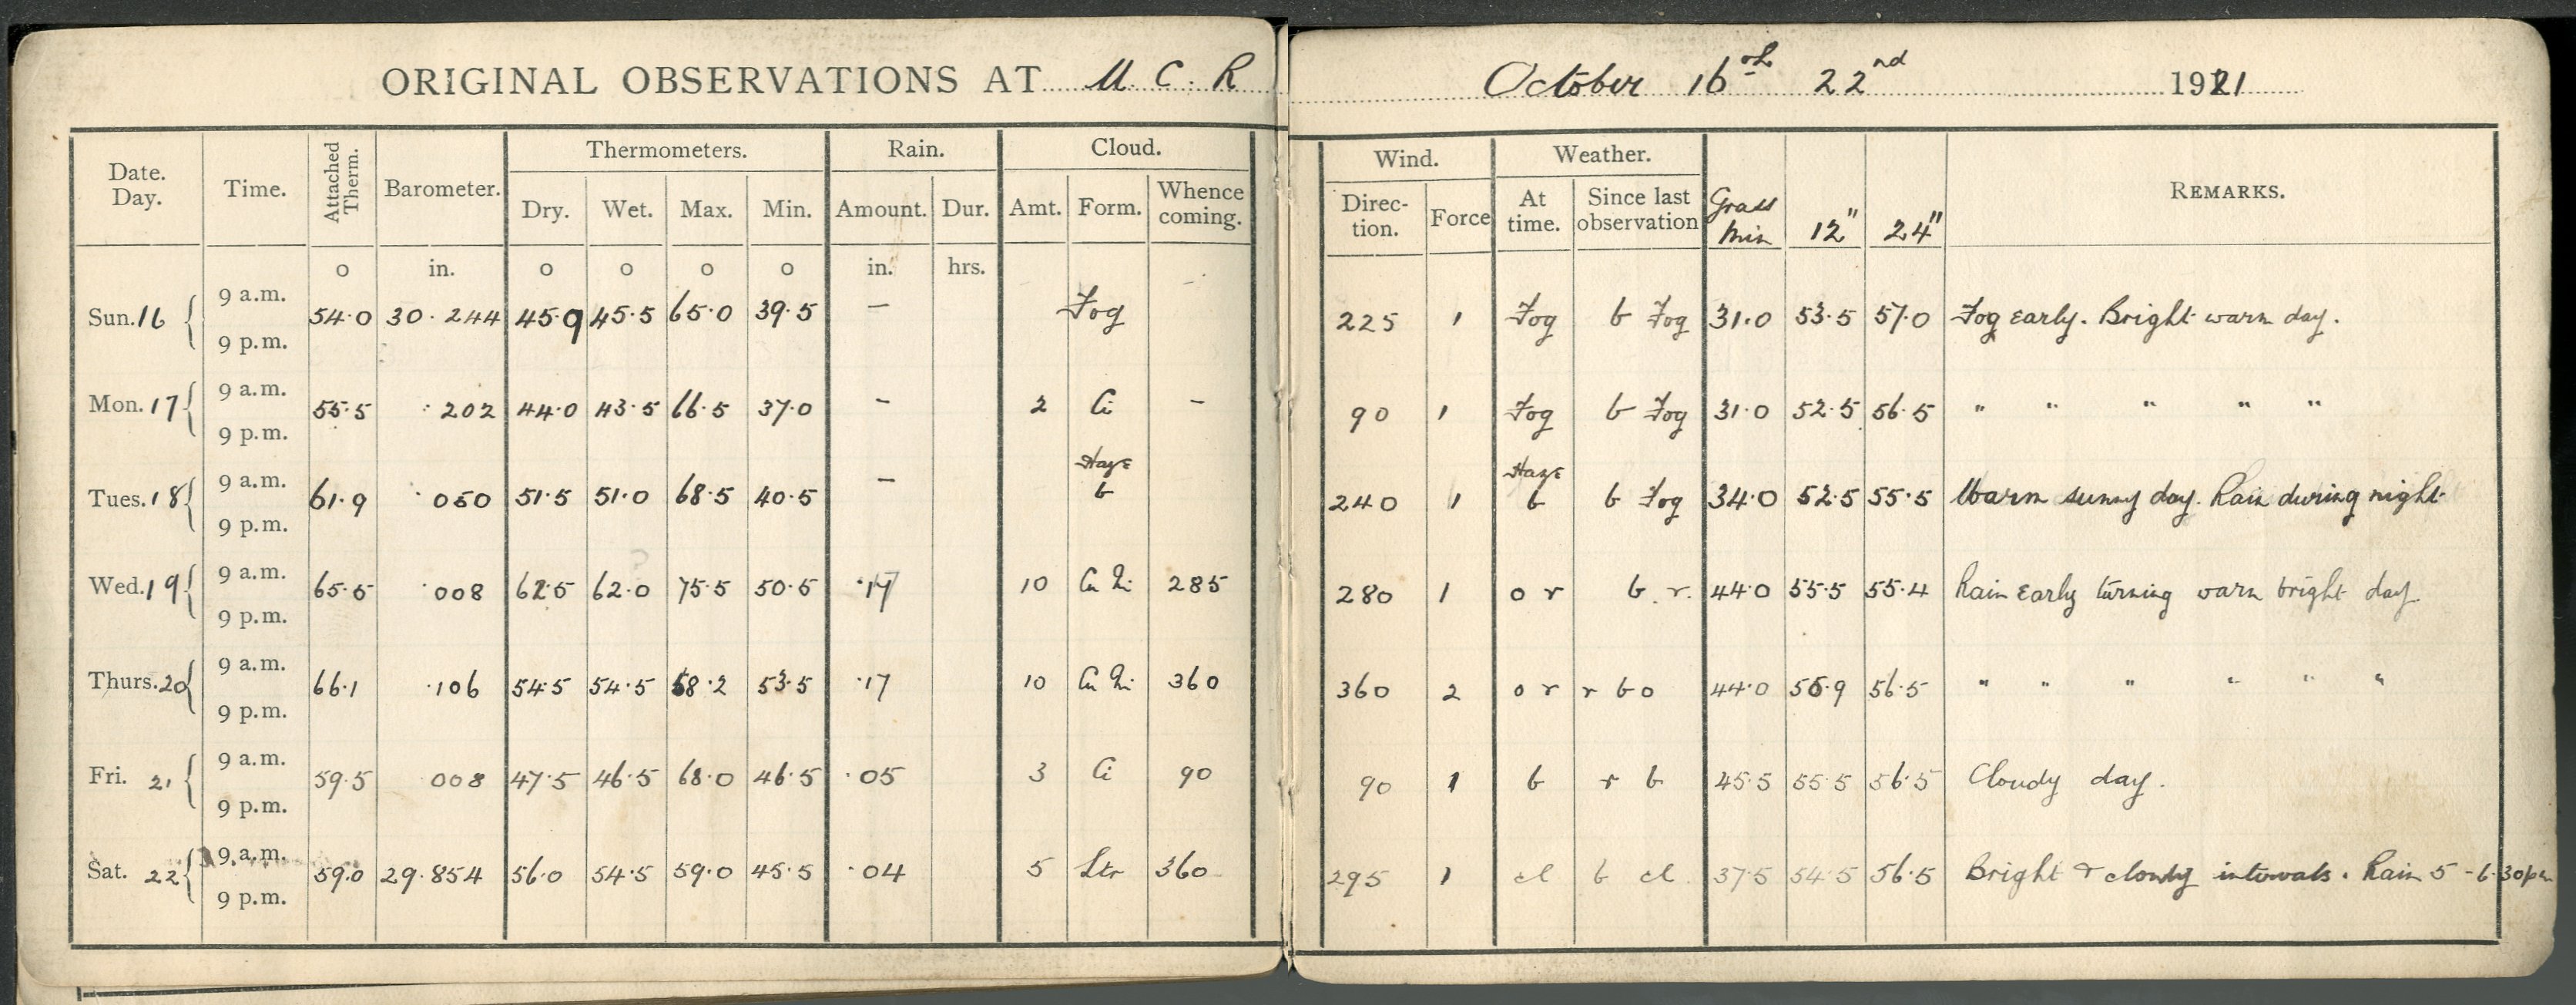 ORIGINAL OBSERVATIONS AT M. C. R October 16th 22nd 1921
Date. Day. Time. Attached Therm. Barometer. Thermometers. Rain. Cloud. Wind. Weather. Grass Min 12" 24" REMARKS.
Dry. Wet. Max. Min. Amount. Dur. Amt. Form. Whence coming. Direc-tion. Force At time. Since last observation
o in. o o o o in. hrs.
Sun. 16 9 a.m. 54.0 30.244 45.9 45.5 65.0 39.5 — Fog 225 1 Fog b Fog 31.0 53.5 57.0 Fog early. Bright warm day.
9 p.m.
Mon. 17 9 a.m. 55.5 .202 44.0 43.5 66.5 37.0 — 2 Ci — 90 1 Fog b Fog 31.0 52.5 56.5 " " " " "
9 p.m.
Tues. 18 9 a.m. 61.9 .050 51.5 51.0 68.5 40.5 — Haze b 240 1 Haze b b Fog 34.0 52.5 55.5 Warm sunny day. Rain during night
9 p.m.
Wed. 19 9 a.m. 65.5 .008 62.5 62.0 75.5 50.5 .17 10 Cu Ni 285 280 1 o r b. r. 44.0 55.5 55.4 Rain Early turning warm bright day
9 p.m.
Thurs. 20 9 a.m. 66.1 .106 54.5 54.5 68.2 53.5 .17 10 Cu Ni 360 360 2 o r r b o 44.0 56.9 56.5 " " " " " "
9 p.m.
Fri. 21 9 a.m. 59.5 008 47.5 46.5 68.0 46.5 .05 3 Ci 90 90 1 b r b 45.5 55.5 56.5 Cloudy day.
9 p.m.
Sat. 22 9 a.m. 59.0 29.854 56.0 54.5 59.0 45.5 .04 5 Str 360 295 1 cl b cl 37.5 54.5 56.5 Bright & cloudy intervals. Rain 5 - 6.30pm
9 p.m.